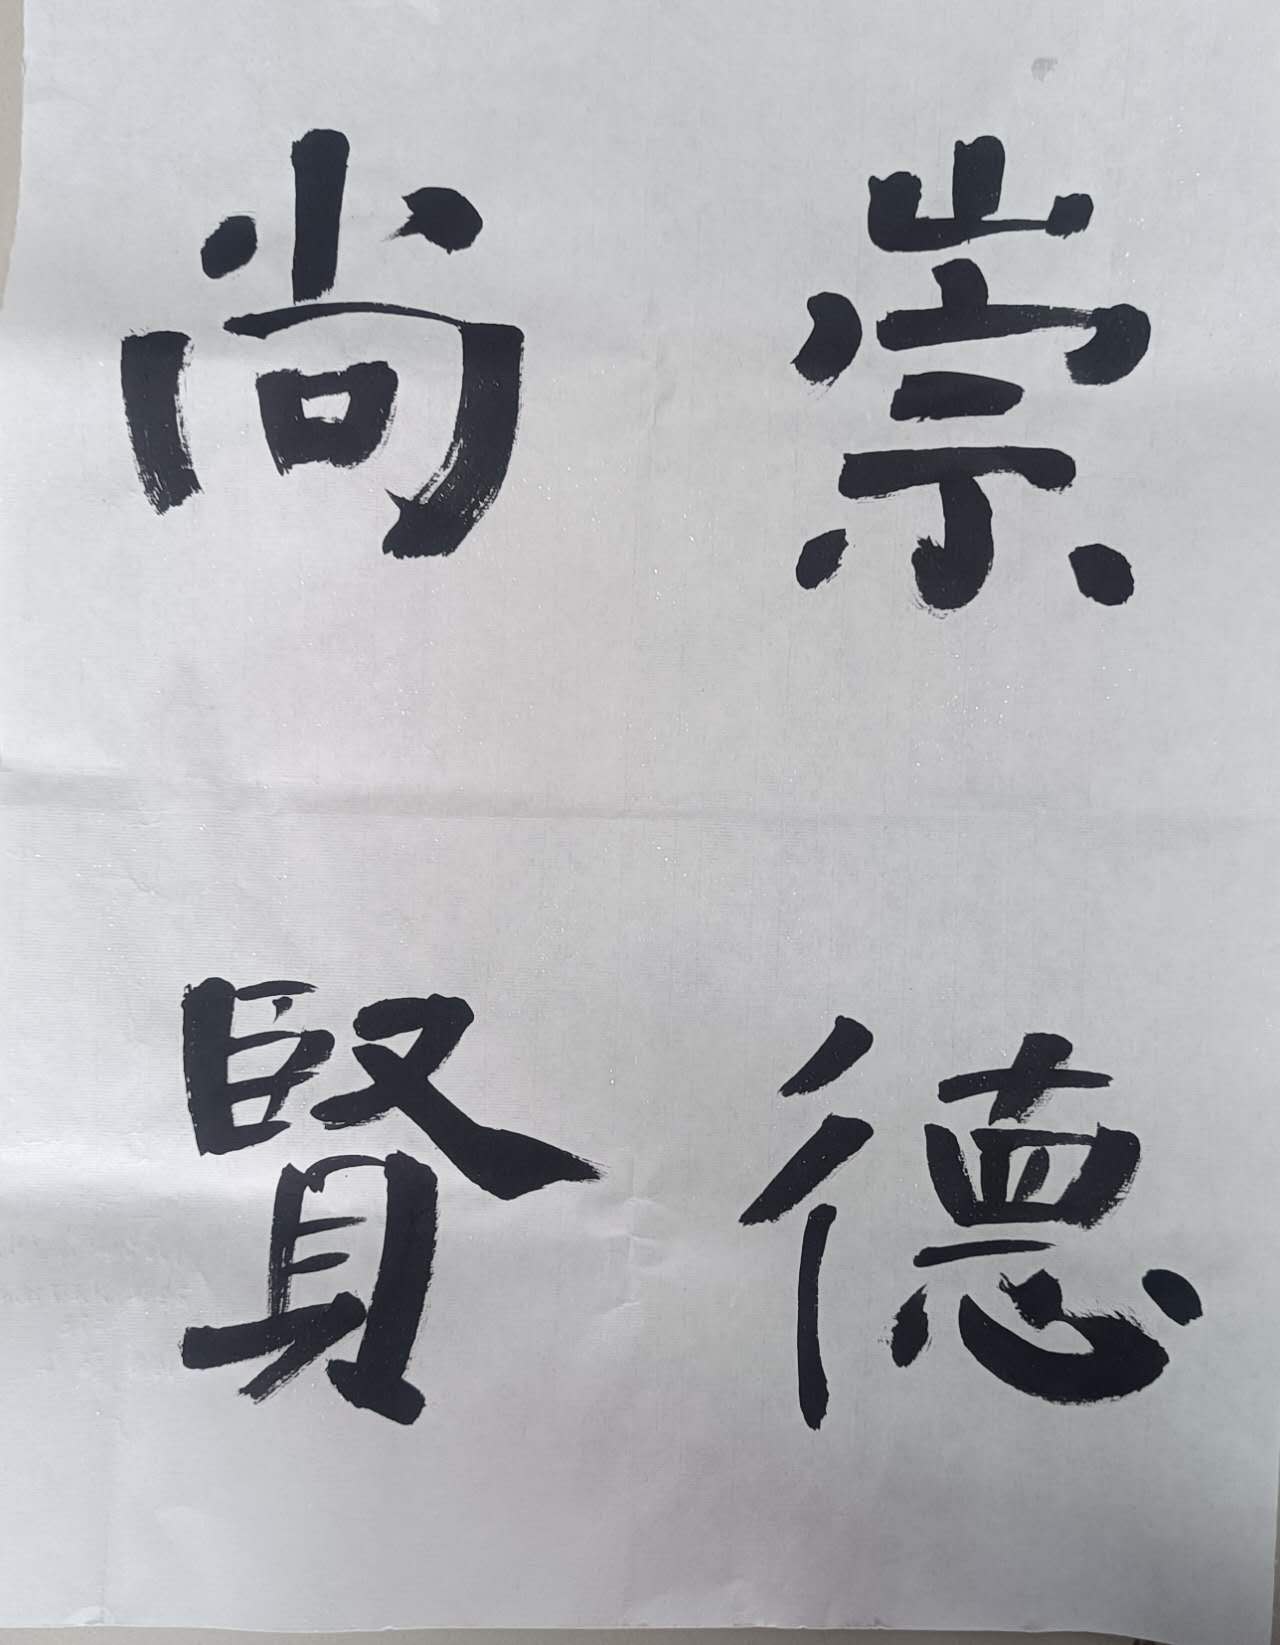 崇德
尚賢